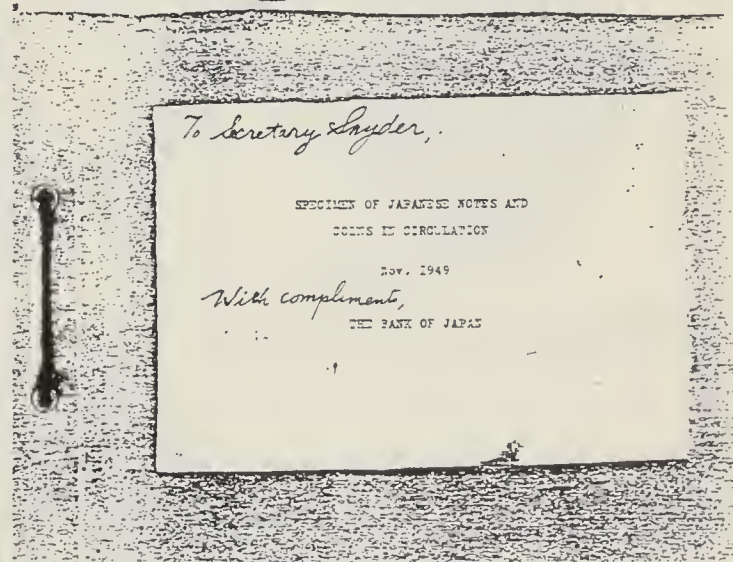 To Secretary Snyder,
SPECIMEN OF JAPANESE NOTES AND
COINS IN CIRCULATION
Nov. 1949
With compliments,
THE BANK OF JAPAN